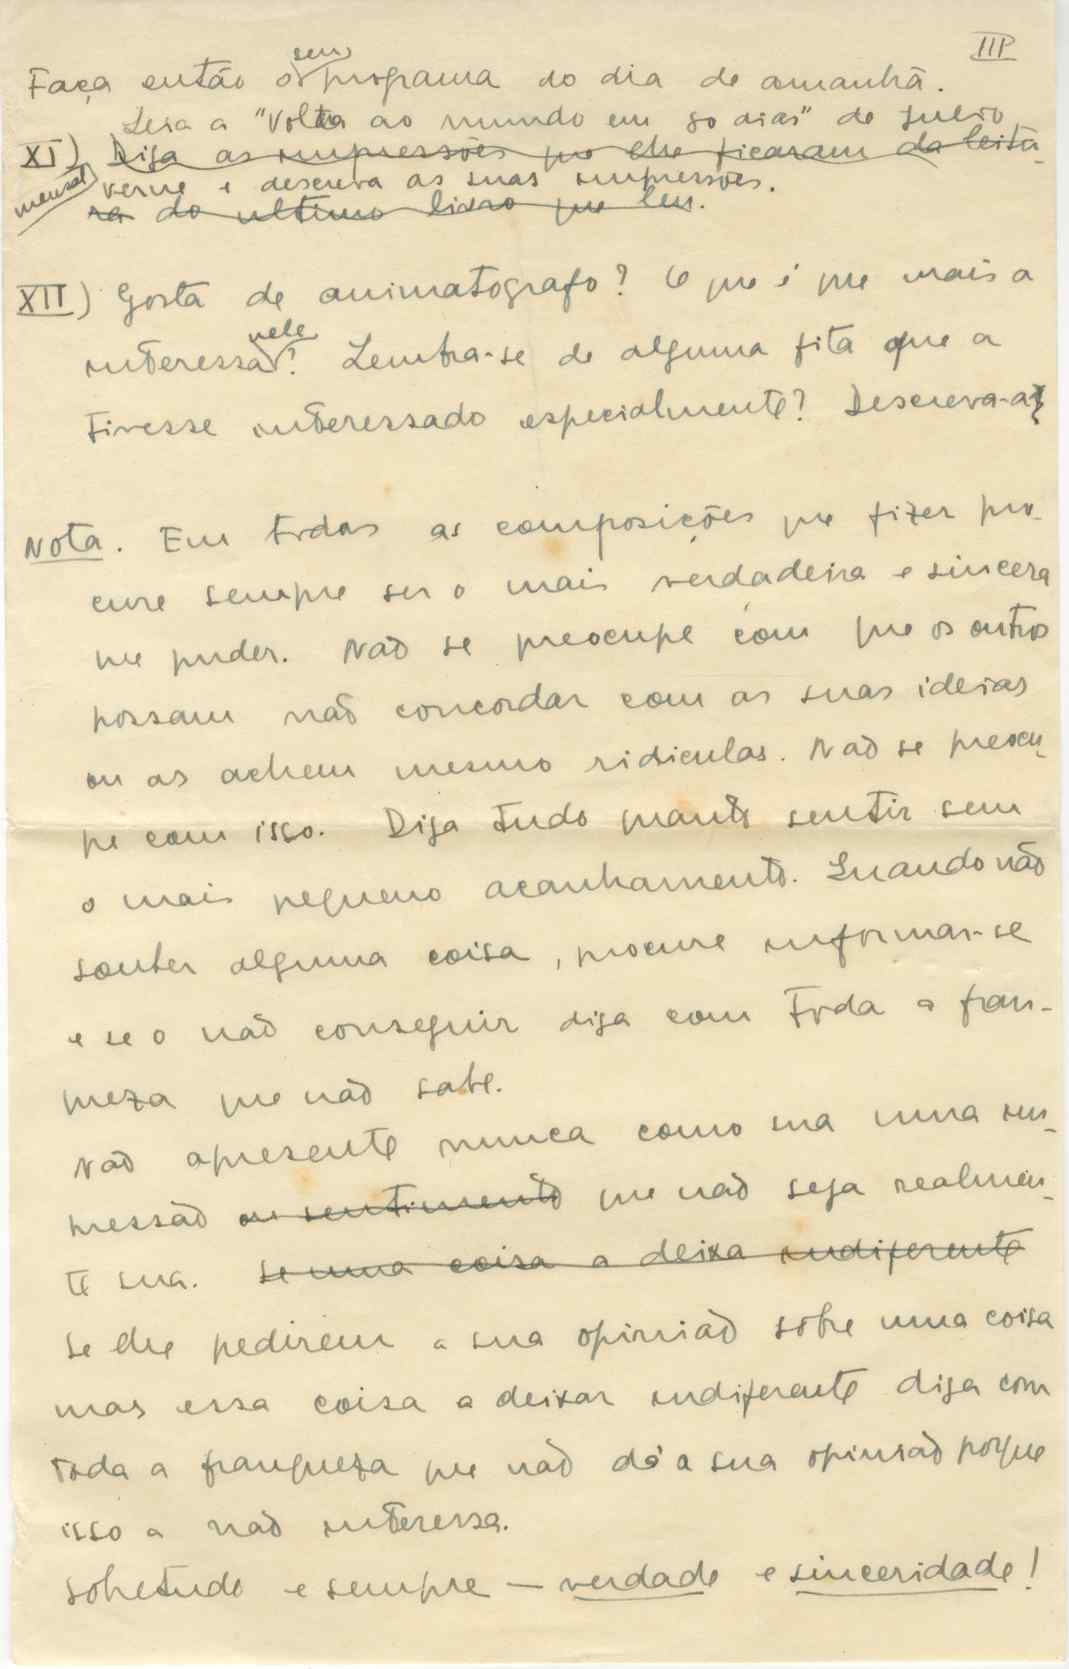 III
Faça então o seu programa do dia de amanhã.
Leia a "Volta ao mundo em 80 dias" de Julio
XI) Diga as impressões que lhe ficaram da leitu-
mensal
Verne e descreva as suas impressões.
ra do ultimo livro que leu.
XII) Gosta de animatografo? O que é que mais a
interessa nele? Lembra-se de alguma fita que a
tivesse interessado especialmente? Descreva-a
Nota. Em todas as composições que fizer pro-
cure sempre ser o mais verdadeira e sincera
que puder. Não se preocupe com que os outros
possam não concordar com as suas ideias
ou as achem mesmo ridiculas. Não se preocu-
pe com isso. Diga tudo quanto sentir sem
o mais pequeno acanhamento. Quando não
souber alguma coisa, procure informar-se
e se o não conseguir diga com toda a fran-
queza que não sabe.
Não apresente nunca como sua uma im-
pressão ou sentimento que não seja realmen-
te sua. Se uma coisa a deixa indiferente
Se lhe pedirem a sua opinião sobre uma coisa
mas essa coisa a deixar indiferente diga com
toda a franqueza que não dá a sua opinião porque
isso a não interessa.
Sobretudo e sempre — verdade e sinceridade!